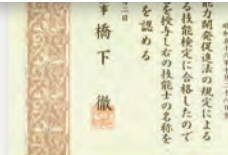 能力開発促進法の規定による
る技能検定に合格したので
を授与し右の技能士の名称を
を認める
二日
事 橋下 徹